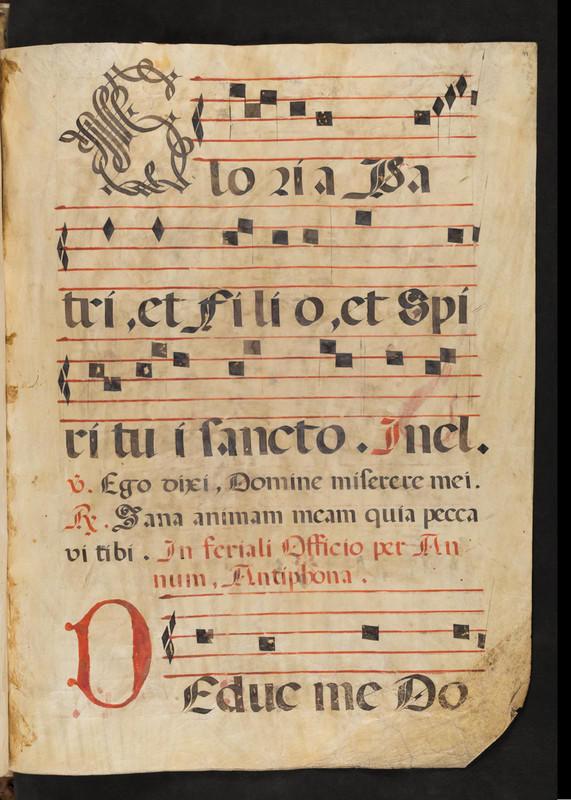 Gloria Pa
tri, et Filio, et Spi
ritui sancto. Inel.
℣. Ego dixi, Domine miserere mei.
℟. Sana animam meam quia pecca
vi tibi. In feriali Officio per An
num, Antiphona.
DEduc me Do